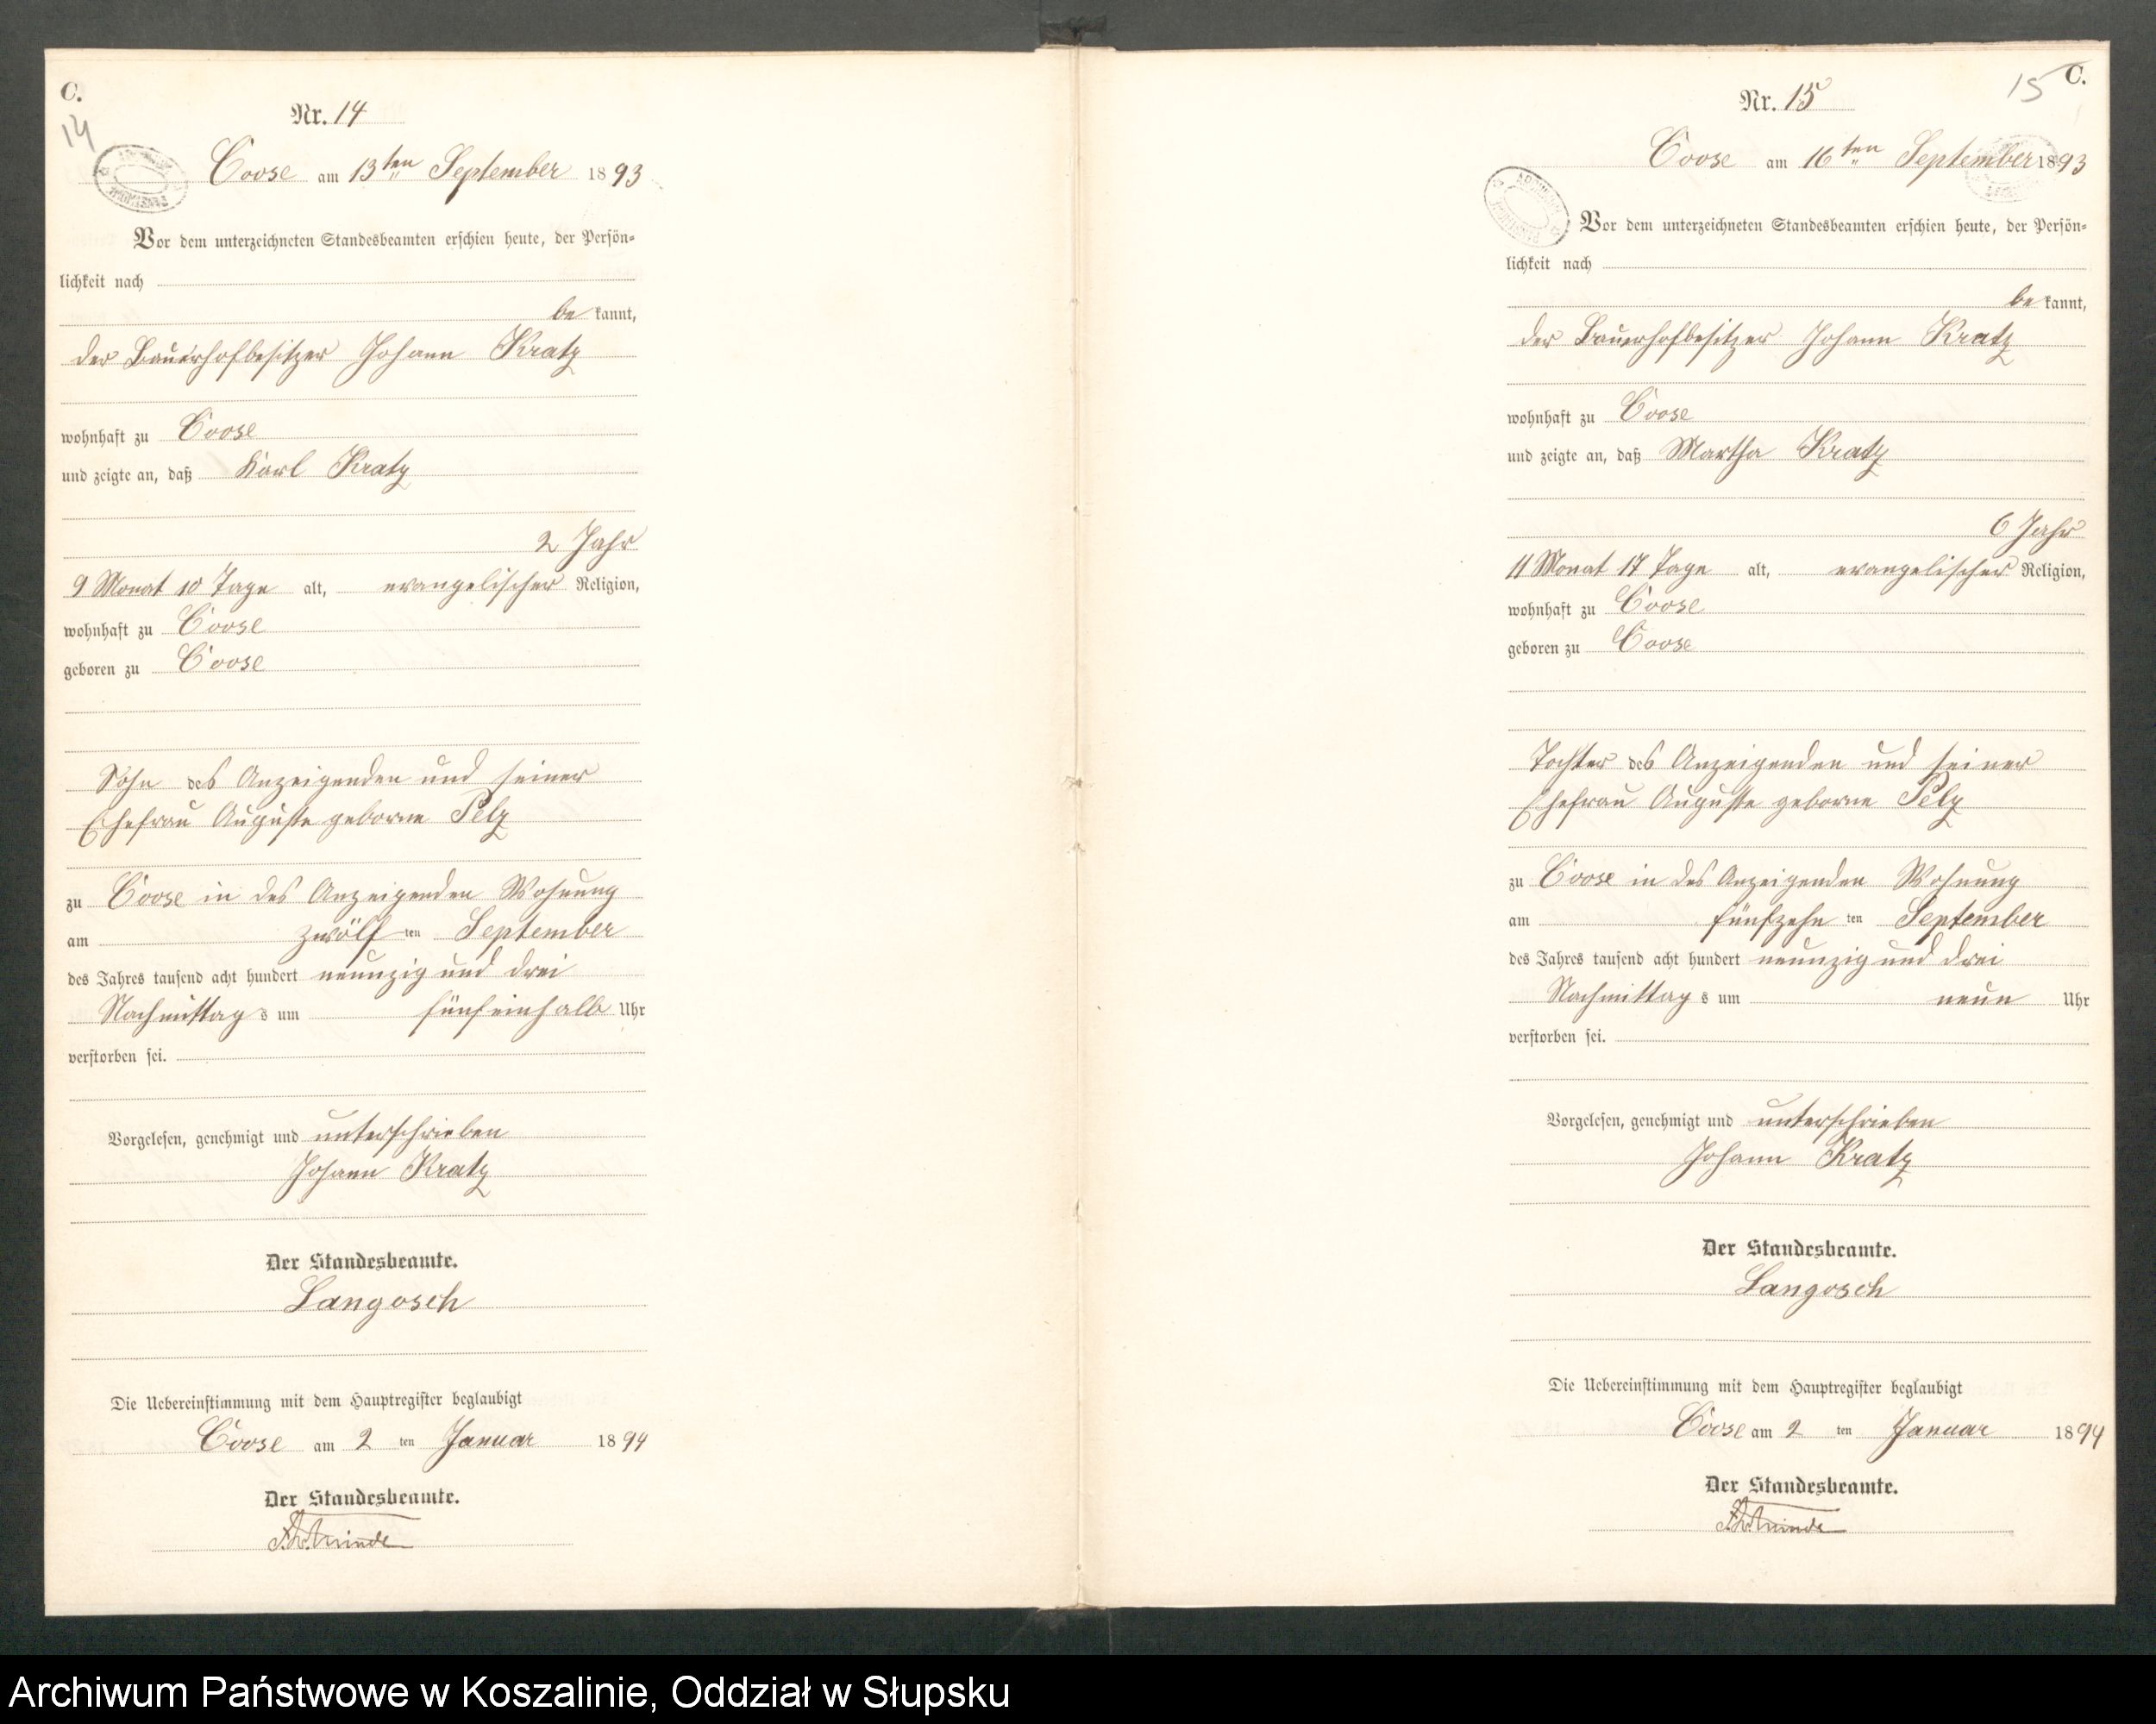 C.
14
Nr. 14
Coose am 13ten September 1893
Vor dem unterzeichneten Standesbeamten erschien heute, der Persön-
lichkeit nach
be kannt,
der Bauerhofbesitzer Johann Kratz
wohnhaft zu Coose
und zeigte an, daß Karl Kratz
2 Jahr
9 Monat 10 Tage alt, evangelischer Religion,
wohnhaft zu Coose
geboren zu Coose
Sohn des Anzeigenden und seiner
Ehefrau Auguste geborne Pelz
zu Coose in des Anzeigenden Wohnung
am zwölf ten September
des Jahres tausend acht hundert neunzig und drei
Nachmittag s um fünfeinhalb Uhr
verstorben sei.
Vorgelesen, genehmigt und unterschrieben
Johann Kratz
Der Standesbeamte.
Langosch
Die Uebereinstimmung mit dem Hauptregister beglaubigt
Coose am 2 ten Januar 1894
Der Standesbeamte.
C.
15
Nr. 15
Coose am 16ten September 1893
Vor dem unterzeichneten Standesbeamten erschien heute, der Persön-
lichkeit nach
be kannt,
der Bauerhofbesitzer Johann Kratz
wohnhaft zu Coose
und zeigte an, daß Martha Kratz
6 Jahr
11 Monat 17 Tage alt, evangelischer Religion,
wohnhaft zu Coose
geboren zu Coose
Tochter des Anzeigenden und seiner
Ehefrau Auguste geborne Pelz
zu Coose in des Anzeigenden Wohnung
am fünfzehn ten September
des Jahres tausend acht hundert neunzig und drei
Nachmittag s um neun Uhr
verstorben sei.
Vorgelesen, genehmigt und unterschrieben
Johann Kratz
Der Standesbeamte.
Langosch
Die Uebereinstimmung mit dem Hauptregister beglaubigt
Coose am 2 ten Januar 1894
Der Standesbeamte.
Archiwum Państwowe w Koszalinie, Oddział w Słupsku